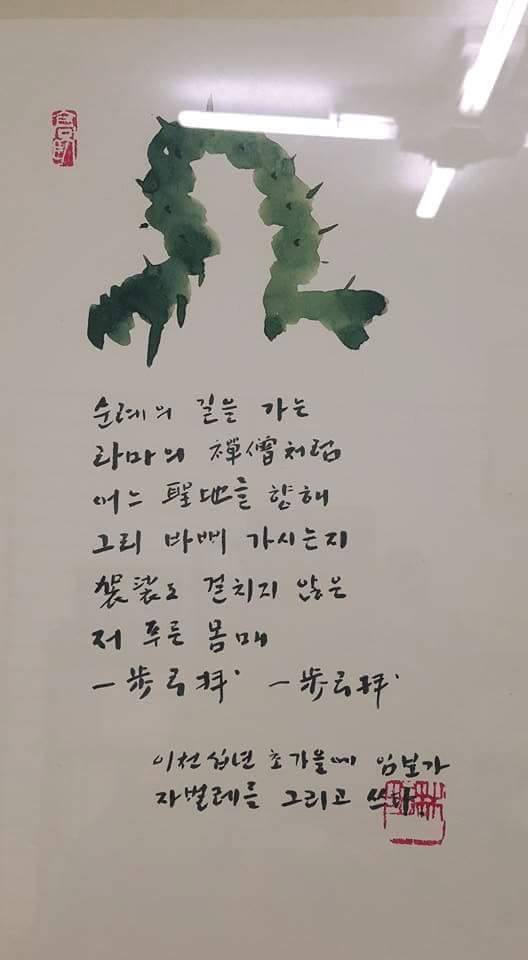 순례의 길을 가는
라마의 禪僧처럼
어느 聖地를 향해
그리 바삐 가시는지
袈裟도 걸치지 않은
저 푸른 몸매
一步弓拜 一步弓拜
이천십년 초가을에 임보가
자벌레를 그리고 쓰다